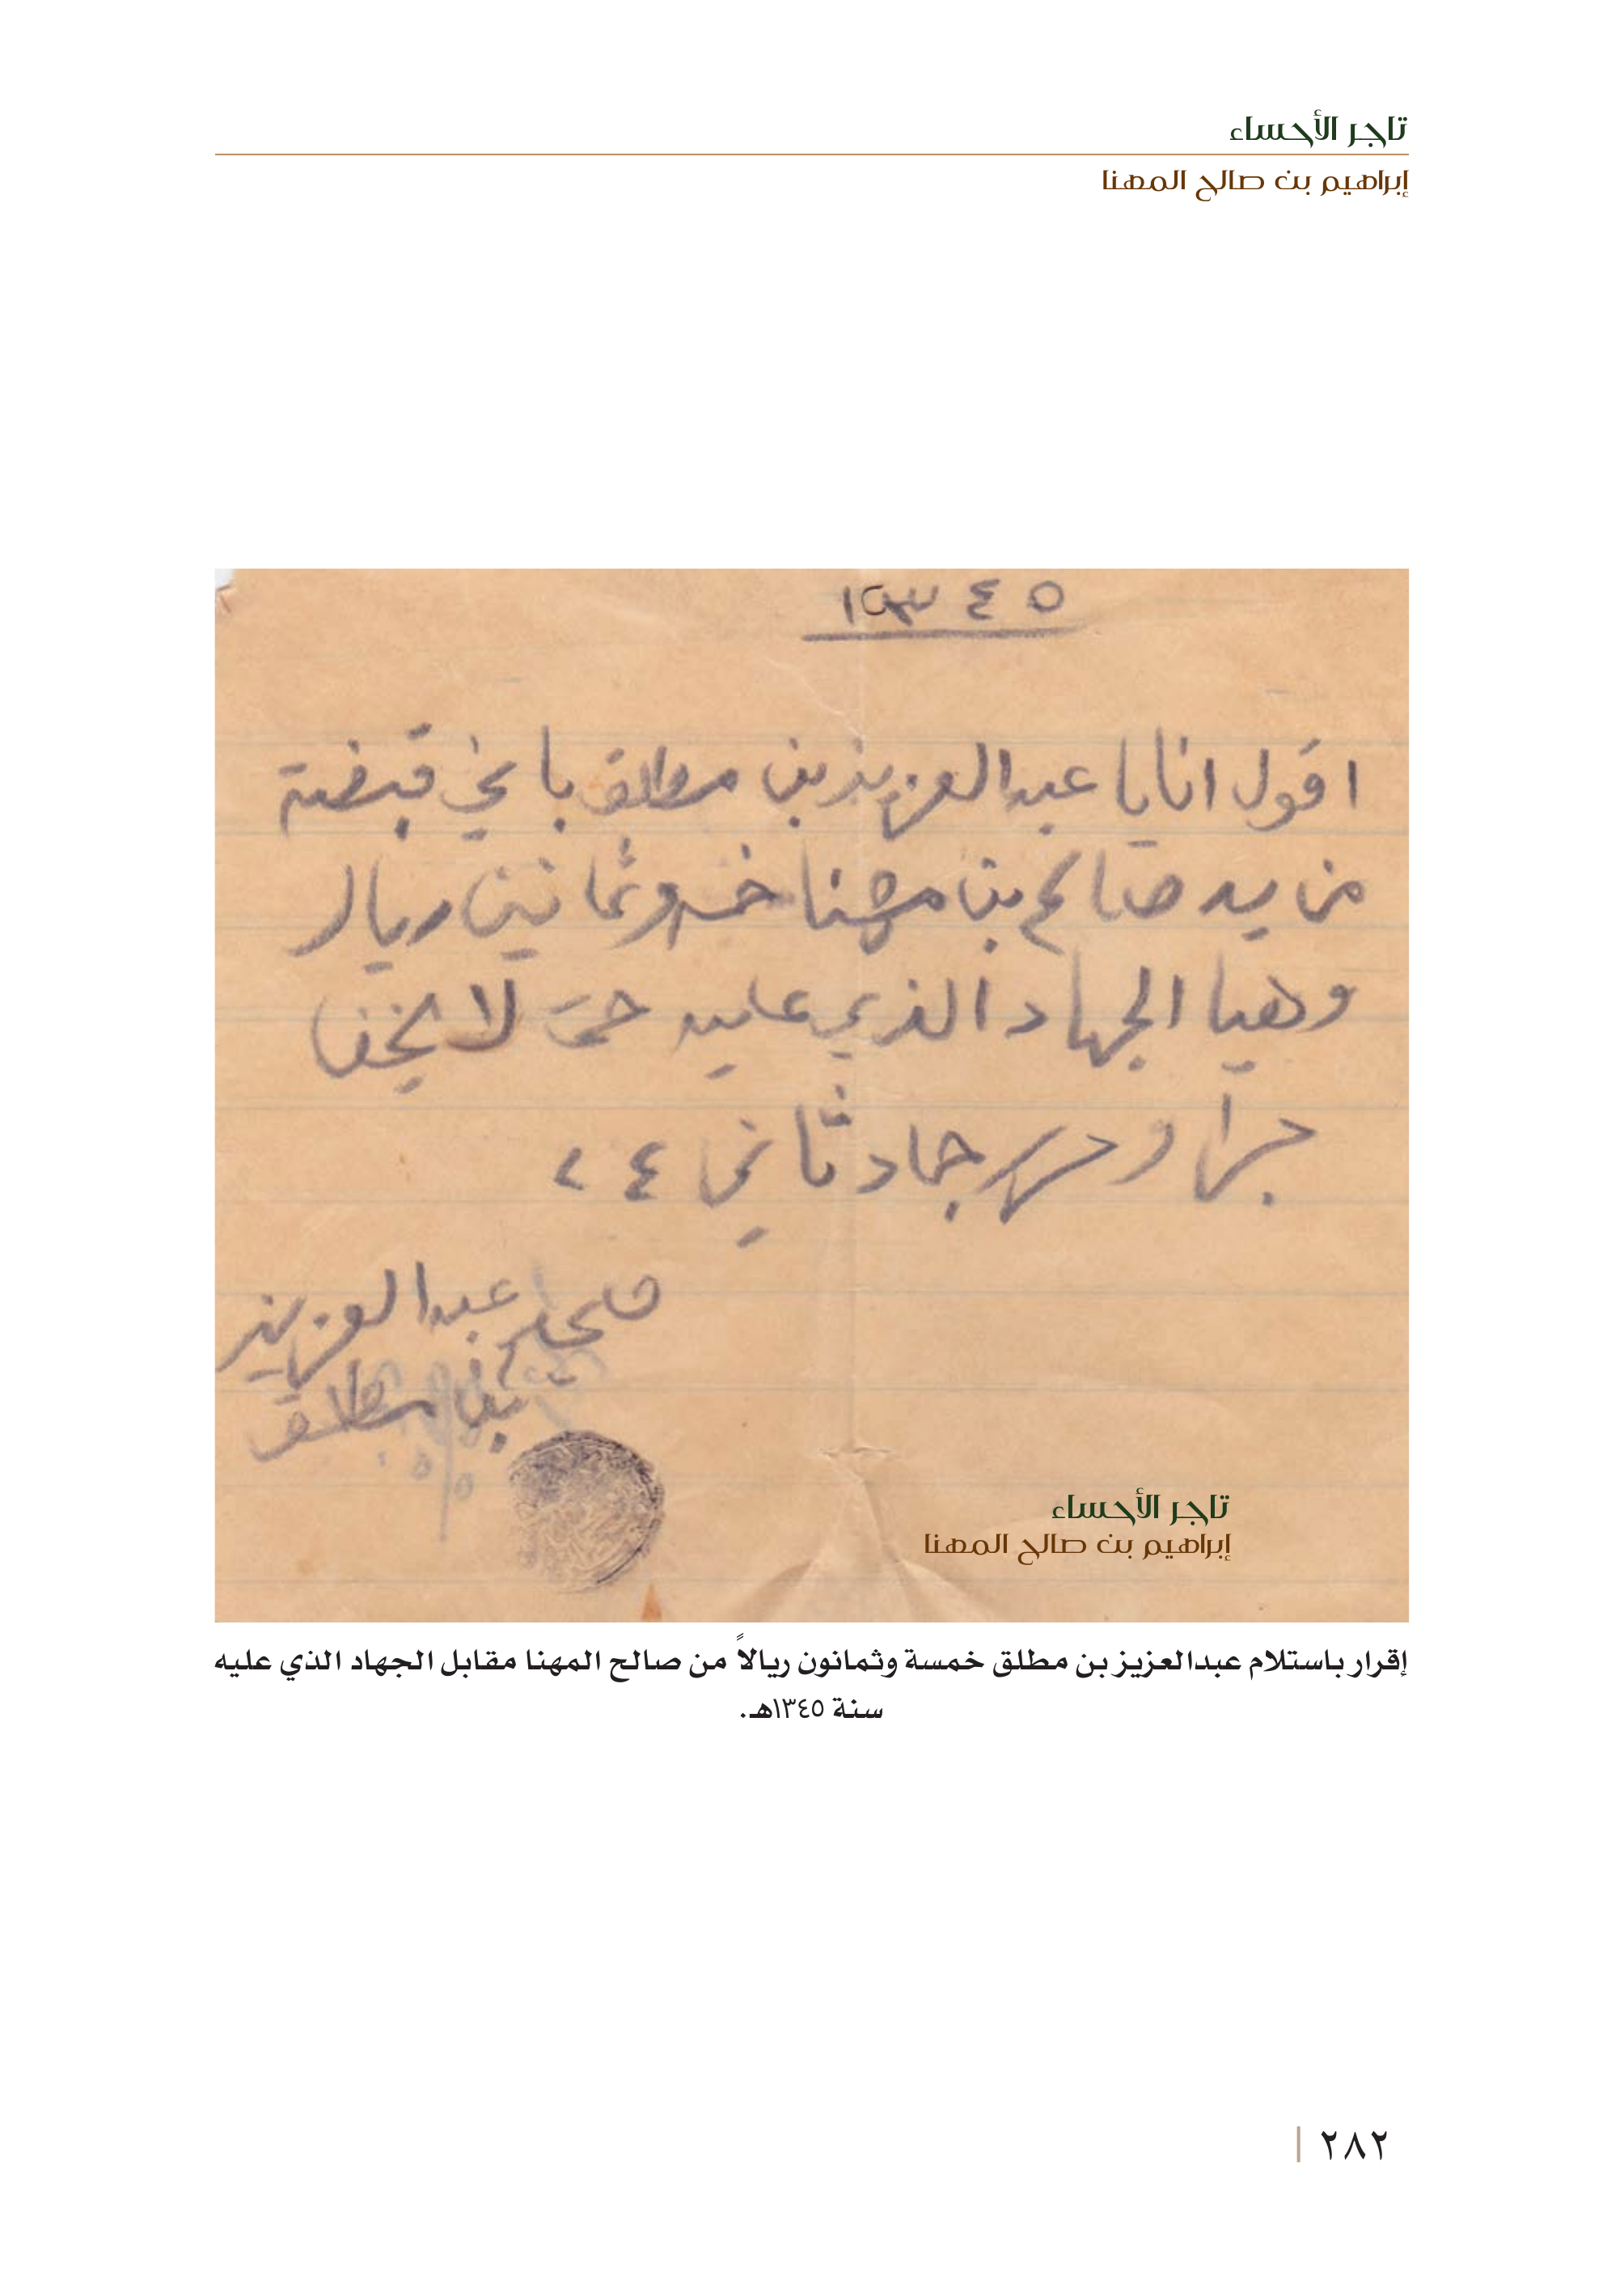 تاجر الأحساء
إبراهيم بن صالح المهنا
١٣٤٥
اقول انايا عبدالعزيز بن مطلق باني قبضة
من يد صالح بن مهنا خمسه وثمانين ريال
وهيا الجهاد الذي عليه حتى لا يخفا
جرا وحرر جماد ثاني ٤
عبدالعزيز
بن مطلق
تاجر الأحساء
إبراهيم بن صالح المهنا
إقرار باستلام عبدالعزيز بن مطلق خمسة وثمانون ريالاً من صالح المهنا مقابل الجهاد الذي عليه
سنة ١٣٤٥هـ.
٢٨٢